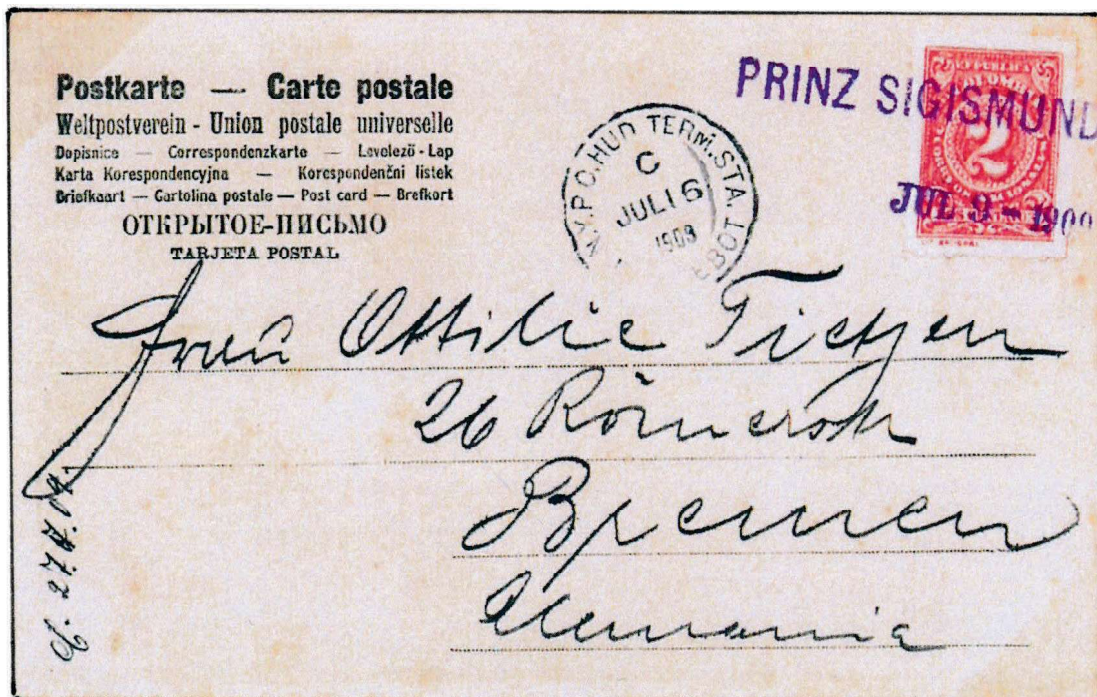 Postkarte — Carte postale
Weltpostverein - Union postale universelle
Dopisnice — Correspondenzkarte — Levelező-Lap
Karta Korespondencyjna — Korespondenční lístek
Briefkaart — Cartolina postale — Post card — Brefkort
ОТКРЫТОЕ-ПИСЬМО
TARJETA POSTAL
N.Y.P.O. HUD TERM. STA.
C
JUL 16
1909
PRINZ SIGISMUND
2
JUL 9 - 1909
Frau Ottilie Tietjen
26 Römerstr
Bremen
Alemania